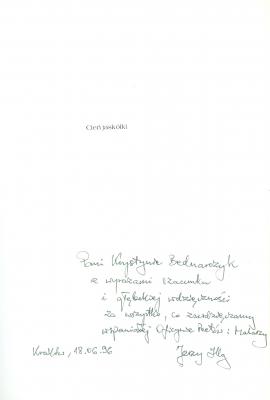 Cień jaskółki
Pani Krystynie Bednarczyk
z wyrazami szacunku
i głębokiej wdzięczności
za wszystko, co zawdzięczamy
wspaniałej Oficynie Poetów i Malarzy
Kraków, 18.06.96 Jerzy Illg